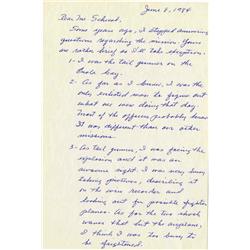 June 8, 1984
Dear Mr. Schwat.
Some years ago, I stopped answering
questions regarding the mission. Yours
are rather brief so I'll take exception.
1- I was the tail gunner on the
Enola Gay.
2- As far as I know, I was the
only enlisted man to figure out
what we were doing that day.
Most of the officers, probably knew.
It was different than on other
missions.
3- As tail gunner, I was facing the
explosion and it was an
awesome sight. I was very busy
taking pictures, describing it
on the wire recorder and
looking out for possible fighter
planes. As for the two shock
waves that hit the airplane,
I think I was too busy to
be frightened.